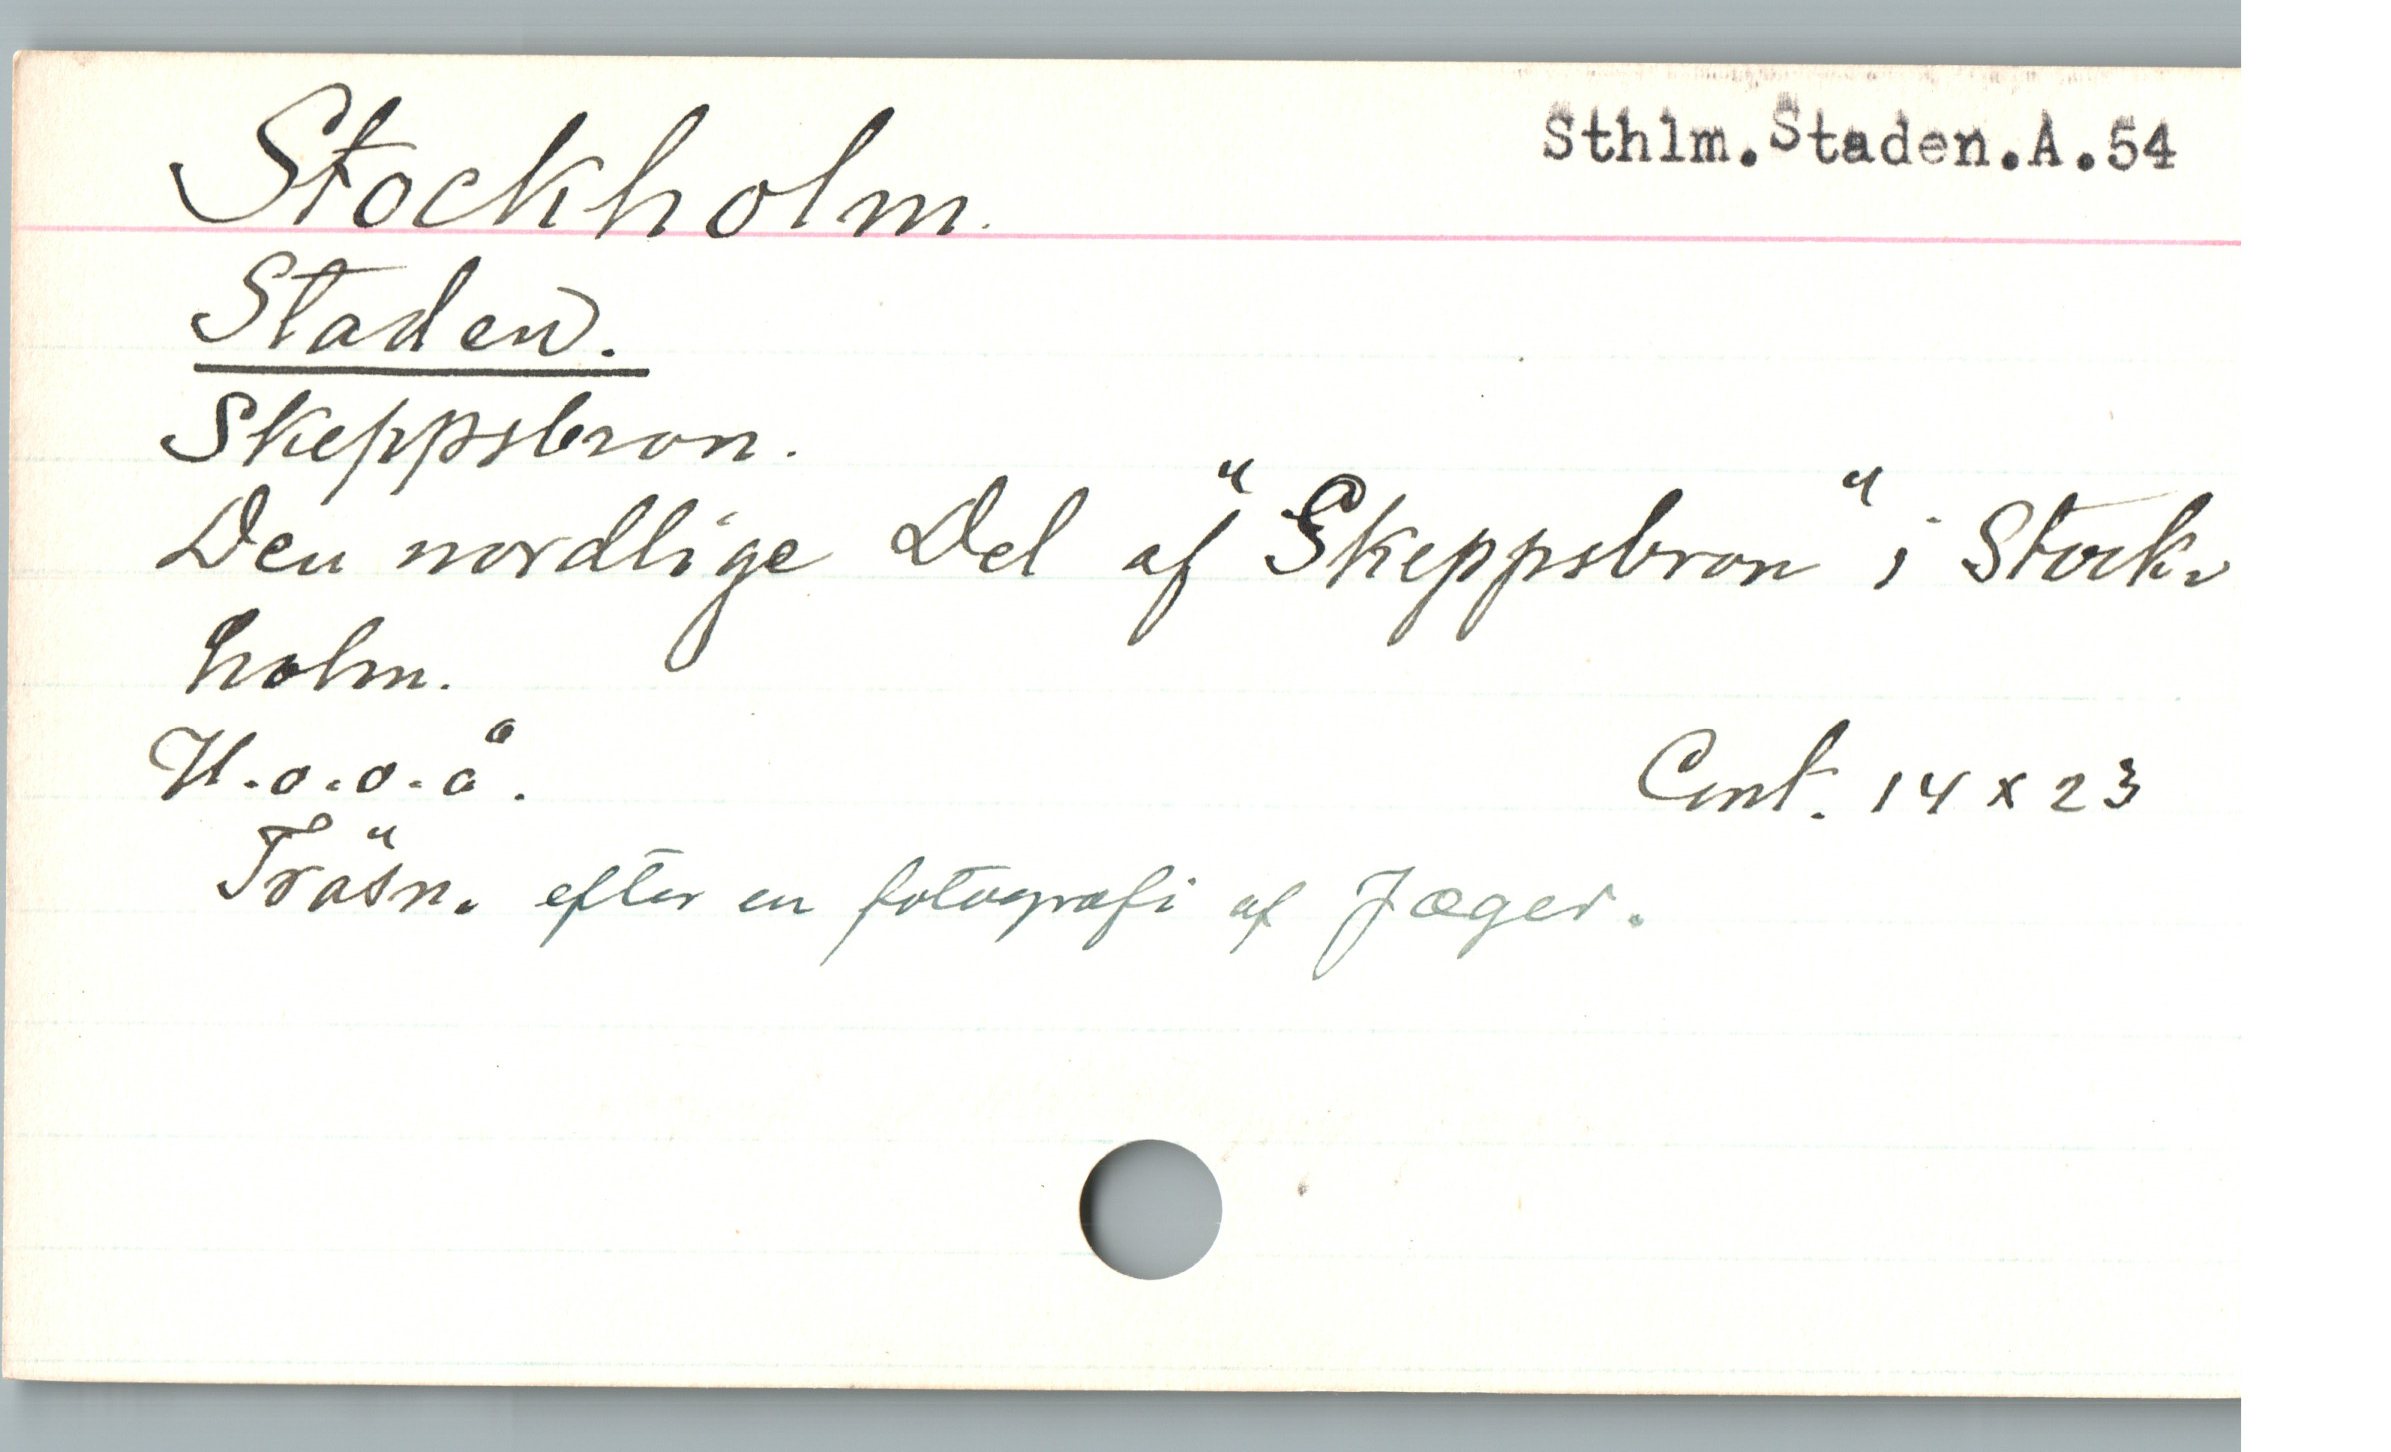 Stockholm.
Sthlm.Staden.A.54
Staden.
Skeppsbron.
Den nordlige Del af "Skeppsbron" i Stock-
holm.
U.o.o.å.
Cent. 14 x 23
Träsn. efter en fotografi af Jæger.